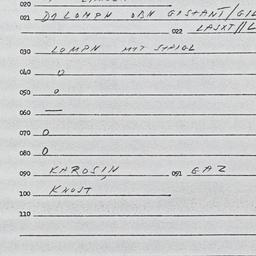 020
021 DI LOMPN ODN GISTANT/GIL
022 LASXT//L
030 LOMPN MYT SHPIGL
040 0
050 0
060 —
070 0
080 0
090 KAROSIN, 091 GAZ
100 KNOJT
110